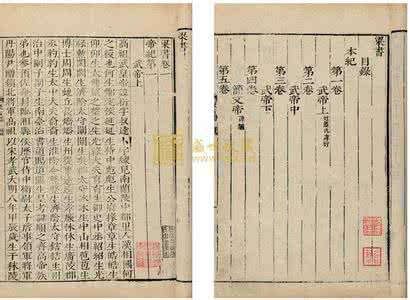 梁書
目錄
本紀
第一卷
武帝上
第二卷
武帝中
第三卷
武帝下
第四卷
簡文帝
第五卷
梁書卷一
帝紀第一
武帝上
高祖武皇帝諱衍字叔達小字練兒南蘭陵中都里人漢相國何
之後也何生酇定侯延延生侍中彪彪生公府掾章章生皓皓生
仰仰生太子太傅望之望之生光祿大夫育育生御史中丞紹紹生光
祿勳閎閎生濟陰太守闡闡生吳郡太守冰冰生中山相苞苞生
博士周周生蛇丘長矯矯生州從事逵逵生孝廉休休生廣陵郡
丞豹豹生太中大夫裔裔生淮陰令整整生濟陰太守鎋鎋生州
治中副子副子生南臺治書道賜道賜生皇考諱順之齊高帝族
弟也參預佐命封臨湘縣侯歷官侍中衛尉太子詹事領軍將軍
丹陽尹贈鎮北將軍高祖以宋孝武大明八年甲辰歲生于秣陵